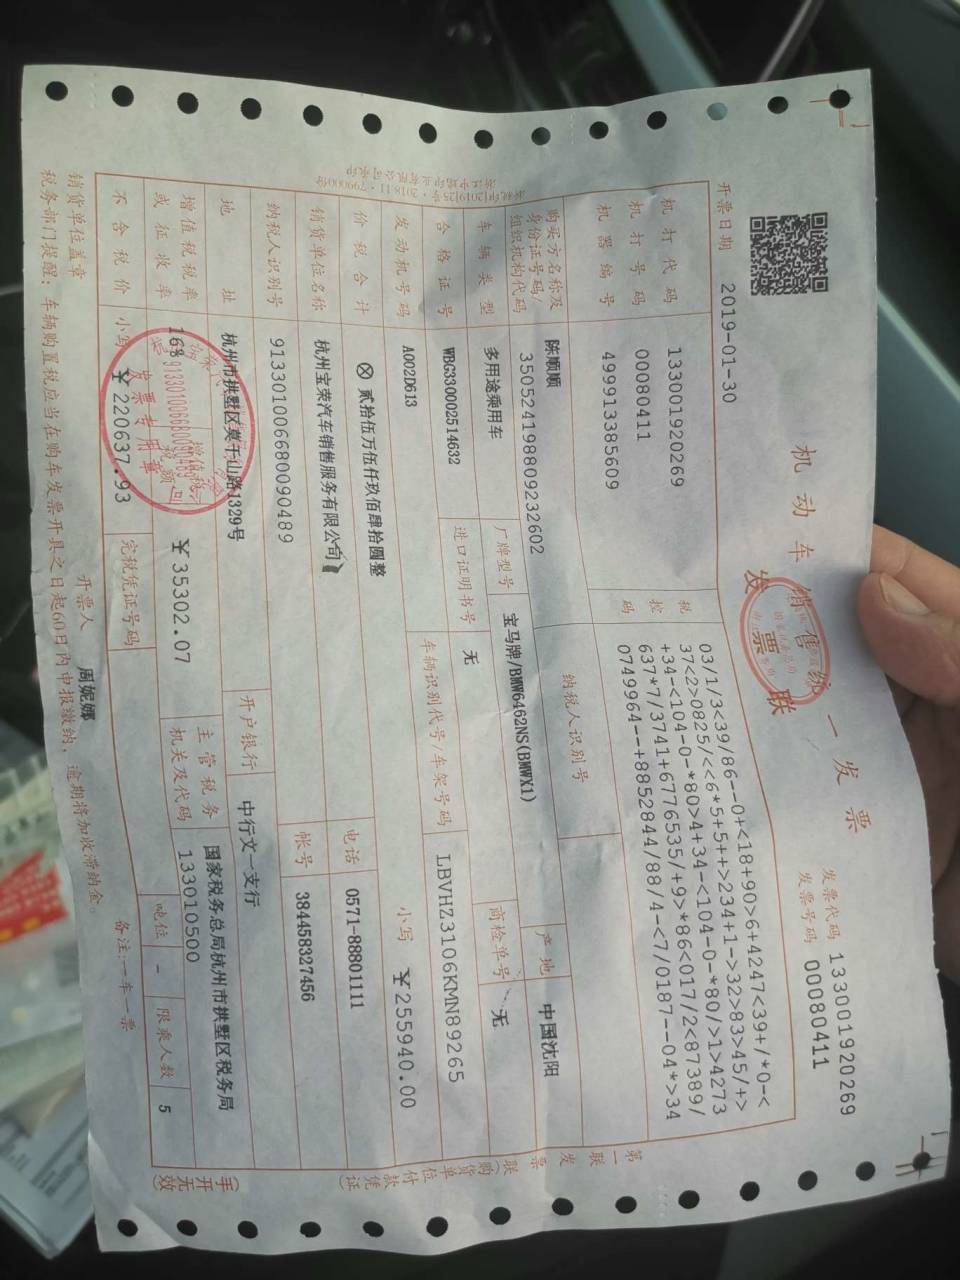 机动车销售统一发票
发票联
发票代码 133001920269
发票号码 00080411
开票日期 2019-01-30
机打代码 133001920269
机打号码 00080411
机器编号 499913385609
税控码
03/1/3<39/86--0+<18+90>6+4247<39+/*0-<
37<2>0825/<<6*5+5++>234+1->32>83>45/+>
+34-<104-0-*80>4+34-<104-0-*80/>1>4273
637*7/3741+6776535/+9>*86<017/2<87389/
0749964--+8852844/88/4-<7/0187--04*>34
购买方名称及身份证号码/组织机构代码 陈顺顺
350524198809232602
纳税人识别号
车辆类型 多用途乘用车 厂牌型号 宝马牌/BMW6462NS(BMWX1) 产地 中国沈阳
合格证号 WBG330002514632 进口证明书号 无 商检单号 无
发动机号码 A002D613 车辆识别代号/车架号码 LBVHZ3106KMN89265
价税合计 ⊗ 贰拾伍万伍仟玖佰肆拾圆整 小写 ¥255940.00
销货单位名称 杭州宝荣汽车销售服务有限公司 电话 0571-88801111
纳税人识别号 913301006680090489 帐号 384458327456
地址 杭州市拱墅区莫干山路1329号 开户银行 中行文一支行
增值税税率或征收率 16% 增值税税额 ¥35302.07 主管税务机关及代码 国家税务总局杭州市拱墅区税务局
133010500
不含税价 小写 ¥220637.93 完税凭证号码 吨位 - 限乘人数 5
销货单位盖章 开票人 周妮娜 备注:一车一票
税务部门提醒：车辆购置税应当在购车发票开具之日起60日内申报缴纳，逾期将加收滞纳金。
第一联 发票联（购货单位付款凭证）
（手开无效）
913301006680090489
发票专用章